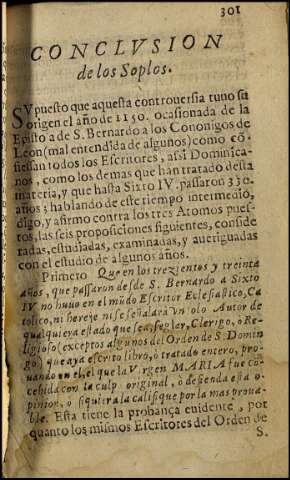 301
CONCLVSION
de los Soplos.
SVpuesto que aquesta controuersia tuuo su
origen el año de 1150. ocasionada de la
Epistola de S. Bernardo a los Cononigos de
Leon (mal entendida de algunos) como cō-
fiessan todos los Escritores, assi Dominica-
nos, como los demas que han tratado desta
materia, y que hasta Sixto IV. passaron 330.
años; hablando de este tiempo intermedio,
digo, y afirmo contra los tres Atomos pues-
tos, las seis proposiciones siguientes, conside
radas, estudiadas, examinadas, y aueriguadas
con el estudio de algunos años.
Primero Que en los trezientos y treinta
años, que passaron desde S. Bernardo a Sixto
IV no huuo en el mūdo Escritor Eclesiastico, Ca
tolico, ni hereje ni se señalarà vn solo Autor de
qualquiera estado que sea, seglar, Clerigo, o Re-
ligioso (exceptos algunos del Orden de S. Domin
go) que aya escrito libro, ò tratado entero, pro-
uando en el, el que la Virgen MARIA fue con
cebida con la culp original, ò defienda esta o-
pinion, ò siquiera la califique por la mas proua-
ble. Esta tiene la probança euidente, por
quanto los mismos Escritores del Orden de
S.